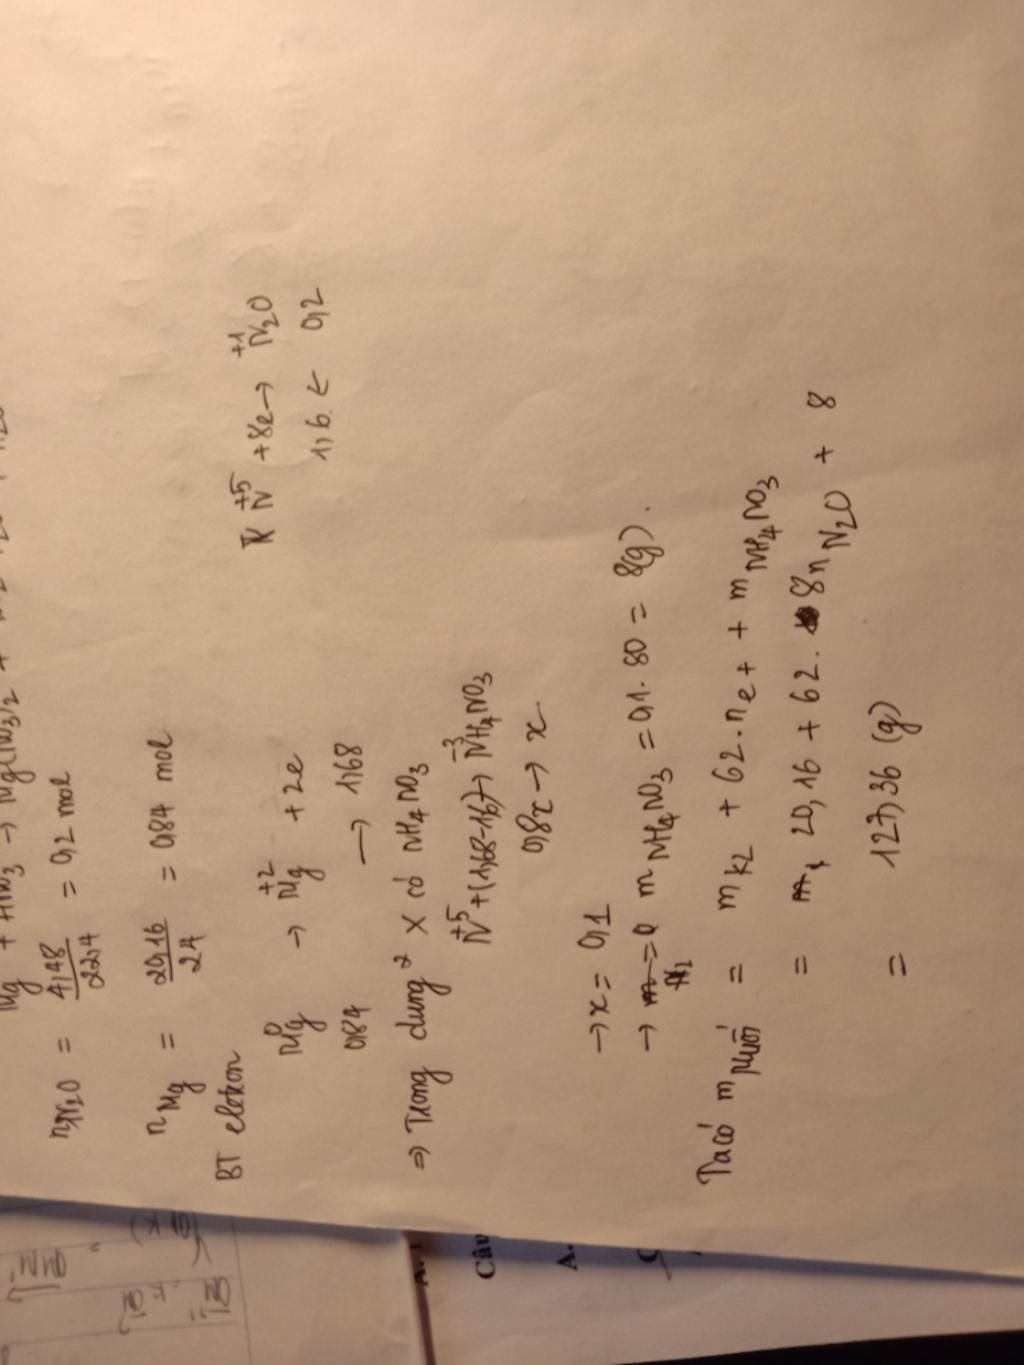 Mg + HNO3 → Mg(NO3)2 +
nN2O = 4,48/22,4 = 0,2 mol
nMg = 20,16/24 = 0,84 mol
BT eletron
Mg⁰ → Mg⁺² + 2e
N⁺⁵ + 8e → N₂⁺¹O
0,84 → 1,68
1,6 ← 0,2
⇒ Trong dung² X có NH4NO3
N⁺⁵ + (1,68-1,6) → N⁻³H4NO3
0,8x → x
→ x = 0,1
→ mNH4NO3 = 0,1.80 = 8(g).
Ta có mMuối = mKL + 62.ne + + mNH4NO3
= 20,16 + 62. 8nN2O + 8
= 127,36 (g)
Câu
A.